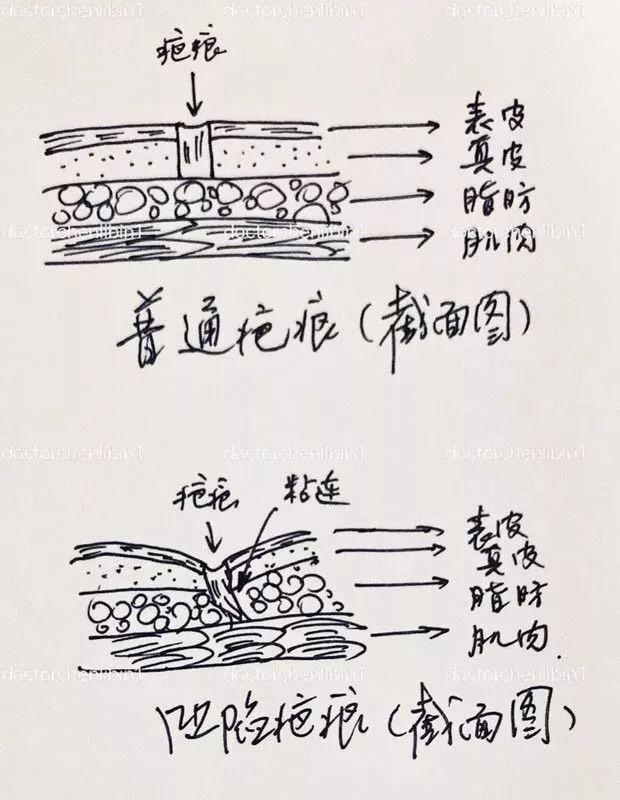 doctorchenlibin1 doctorchenlibin1 doctorchenlibin1
疤痕
表皮
真皮
脂肪
肌肉
doctorchenlibin1 doctorchenlibin1 doctorchenlibin1
普通疤痕(截面图)
doctorchenlibin1 doctorchenlibin1 doctorchenlibin1
疤痕 粘连
表皮
真皮
脂肪
肌肉
doctorchenlibin1 doctorchenlibin1 doctorchenlibin1
凹陷疤痕(截面图)